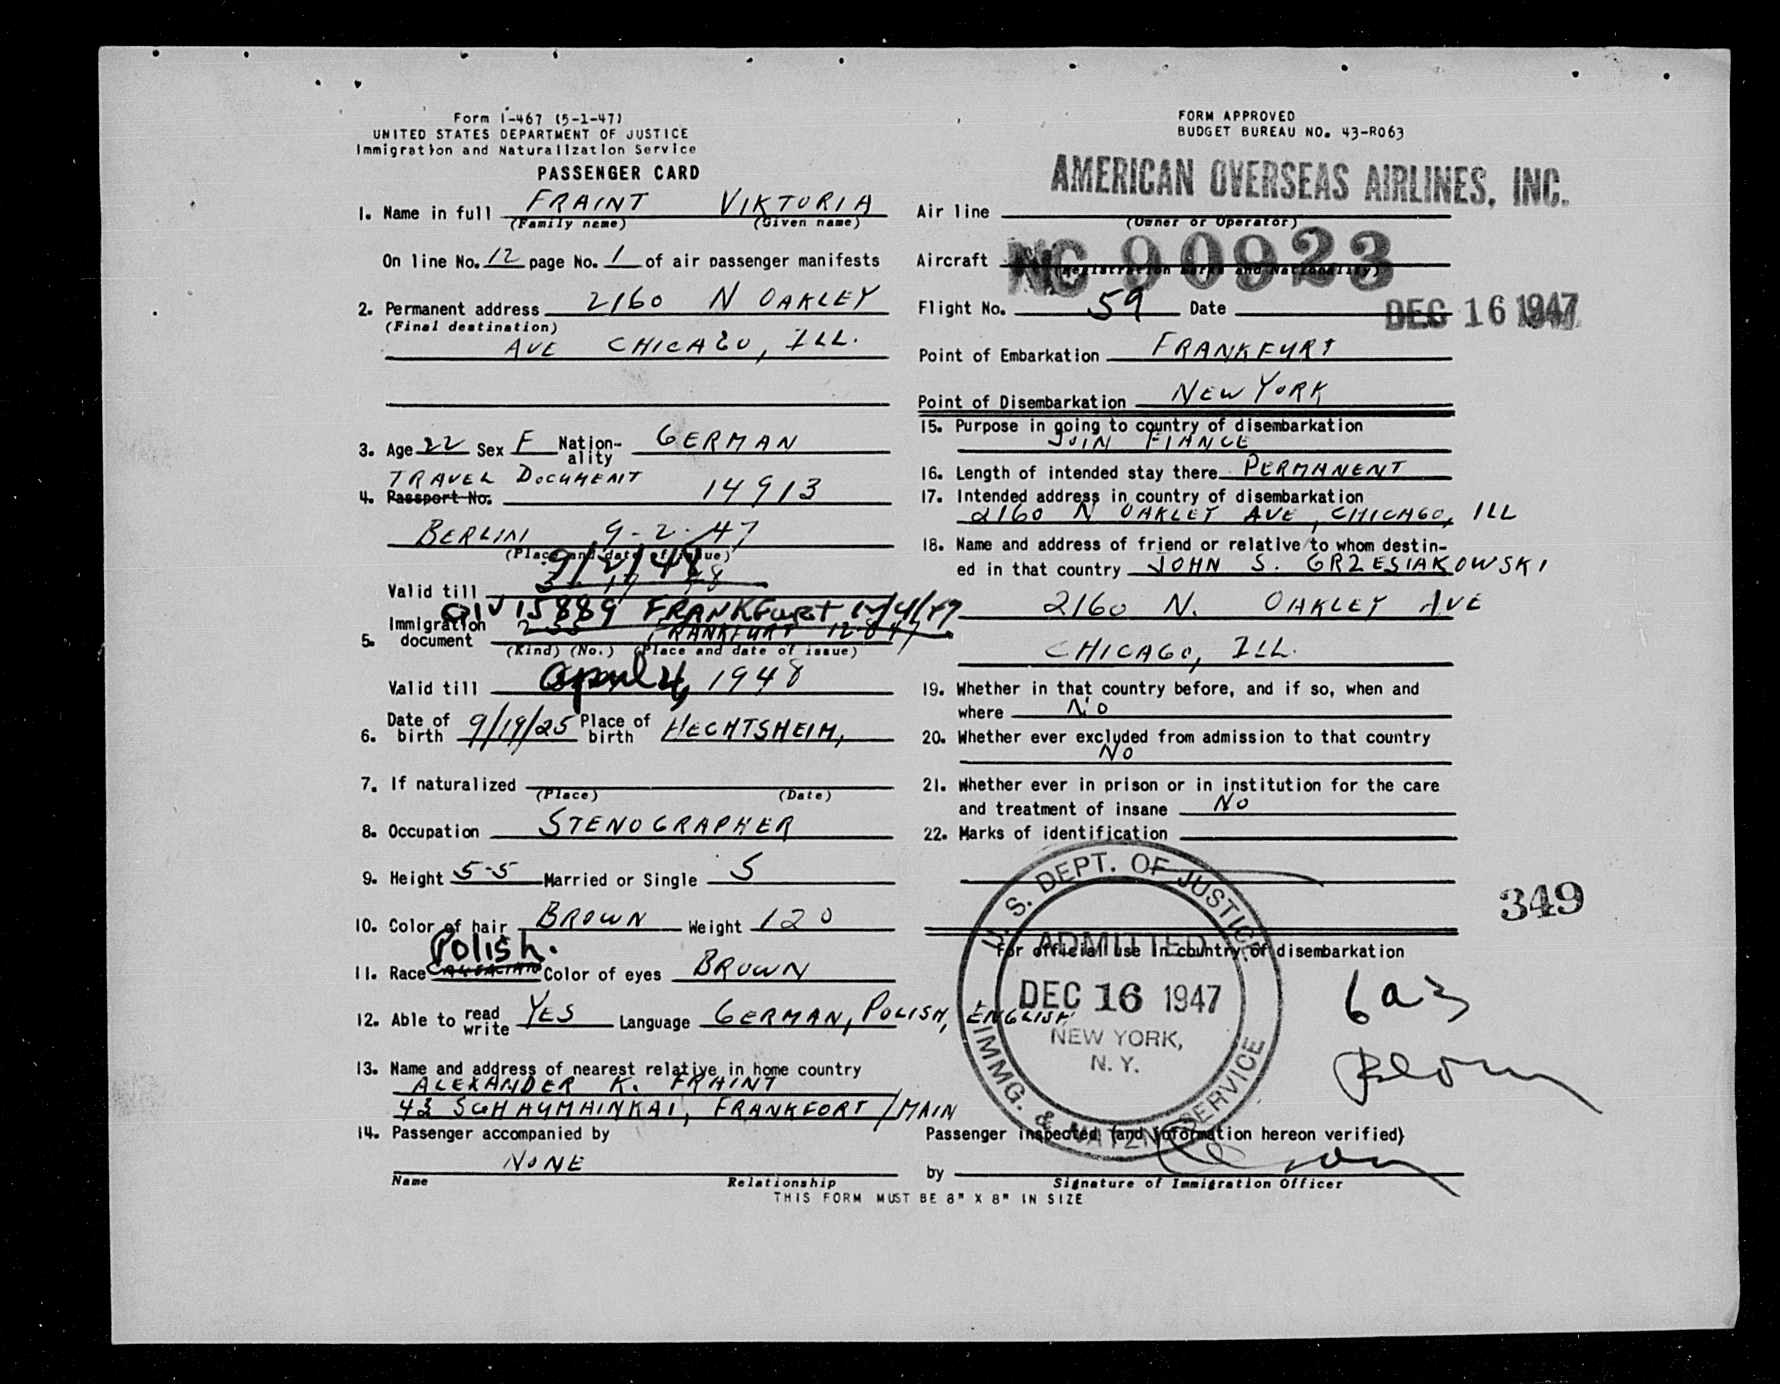 Form I-467 (5-1-47)
UNITED STATES DEPARTMENT OF JUSTICE
Immigration and Naturalization Service
PASSENGER CARD
1. Name in full FRAINT VIKTORIA
(Family name) (Given name)
On line No. 12 page No. 1 of air passenger manifests
2. Permanent address 2160 N OAKLEY
(Final destination)
AVE CHICAGO, ILL.
3. Age 22 Sex F Nation-ality GERMAN
TRAVEL DOCUMENT
4. Passport No. 14913
BERLIN 9-2-47
(Place and date of issue)
9/2/48
Valid till
QIV 15889 FRANKFURT 12/4/47
5. Immigration document FRANKFURT
(Kind) (No.) (Place and date of issue)
Valid till April 4, 1948
6. Date of birth 9/19/25 Place of birth HECHTSHEIM,
7. If naturalized
(Place) (Date)
8. Occupation STENOGRAPHER
9. Height 5-5 Married or Single S
10. Color of hair BROWN Weight 120
Polish.
11. Race CAUCASIAN Color of eyes BROWN
12. Able to read write YES Language GERMAN, POLISH, ENGLISH
13. Name and address of nearest relative in home country
ALEXANDER K. FRAINT
43 SCHAUMAINKAI, FRANKFORT/MAIN
14. Passenger accompanied by
NONE
Name Relationship
FORM APPROVED
BUDGET BUREAU NO. 43-R063
AMERICAN OVERSEAS AIRLINES, INC.
Air line
(Owner or Operator)
Aircraft NC 90923
(Registration marks and Nationality)
Flight No. 59 Date DEC 16 1947
Point of Embarkation FRANKFURT
Point of Disembarkation NEW YORK
15. Purpose in going to country of disembarkation
JOIN FIANCE
16. Length of intended stay there PERMANENT
17. Intended address in country of disembarkation
2160 N OAKLEY AVE, CHICAGO, ILL
18. Name and address of friend or relative to whom destin-
ed in that country JOHN S. GRZESIAKOWSKI
2160 N. OAKLEY AVE
CHICAGO, ILL.
19. Whether in that country before, and if so, when and
where NO
20. Whether ever excluded from admission to that country
NO
21. Whether ever in prison or in institution for the care
and treatment of insane NO
22. Marks of identification
349
For official use in country of disembarkation
U. S. DEPT. OF JUSTICE
ADMITTED
DEC 16 1947
NEW YORK,
N. Y.
IMMG. & NATZN SERVICE
6a3
Passenger inspected (and information hereon verified)
by
Signature of Immigration Officer
THIS FORM MUST BE 8" X 8" IN SIZE